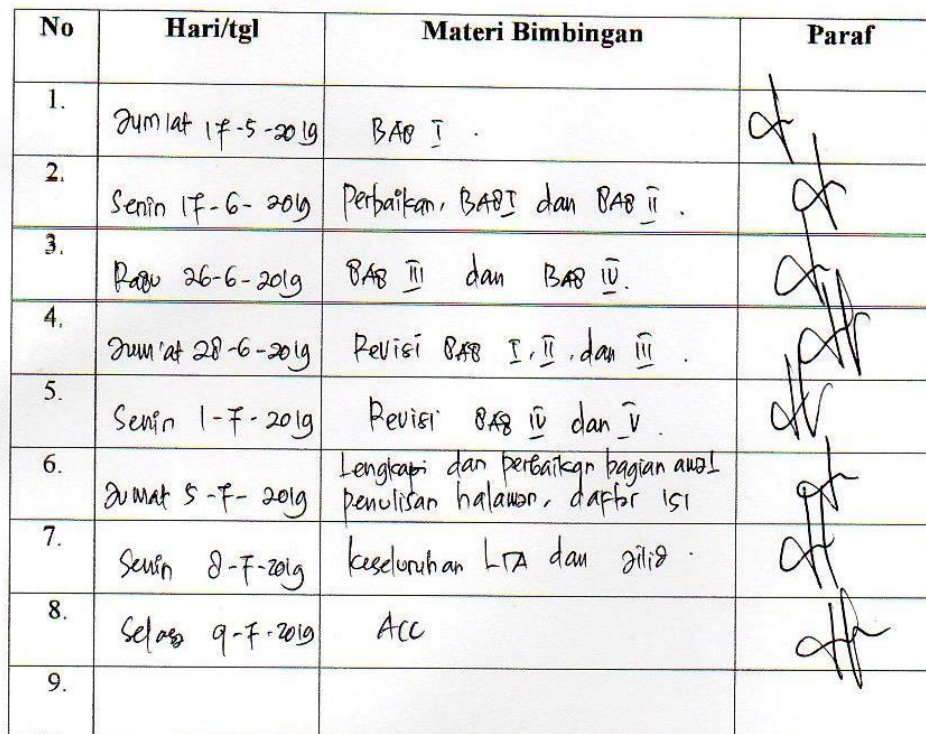 No Hari/tgl Materi Bimbingan Paraf
1. Jum'at 17-5-2019 BAB I .
2. Senin 17-6-2019 Perbaikan, BAB I dan BAB II .
3. Rabu 26-6-2019 BAB III dan BAB IV.
4. Jum'at 28-6-2019 Revisi BAB I, II, dan III .
5. Senin 1-7-2019 Revisi BAB IV dan V .
6. Jumat 5-7-2019 Lengkapi dan perbaikan bagian awal
penulisan halaman, daftar isi
7. Senin 8-7-2019 keseluruhan LTA dan jilid .
8. Selasa 9-7-2019 ACC
9.